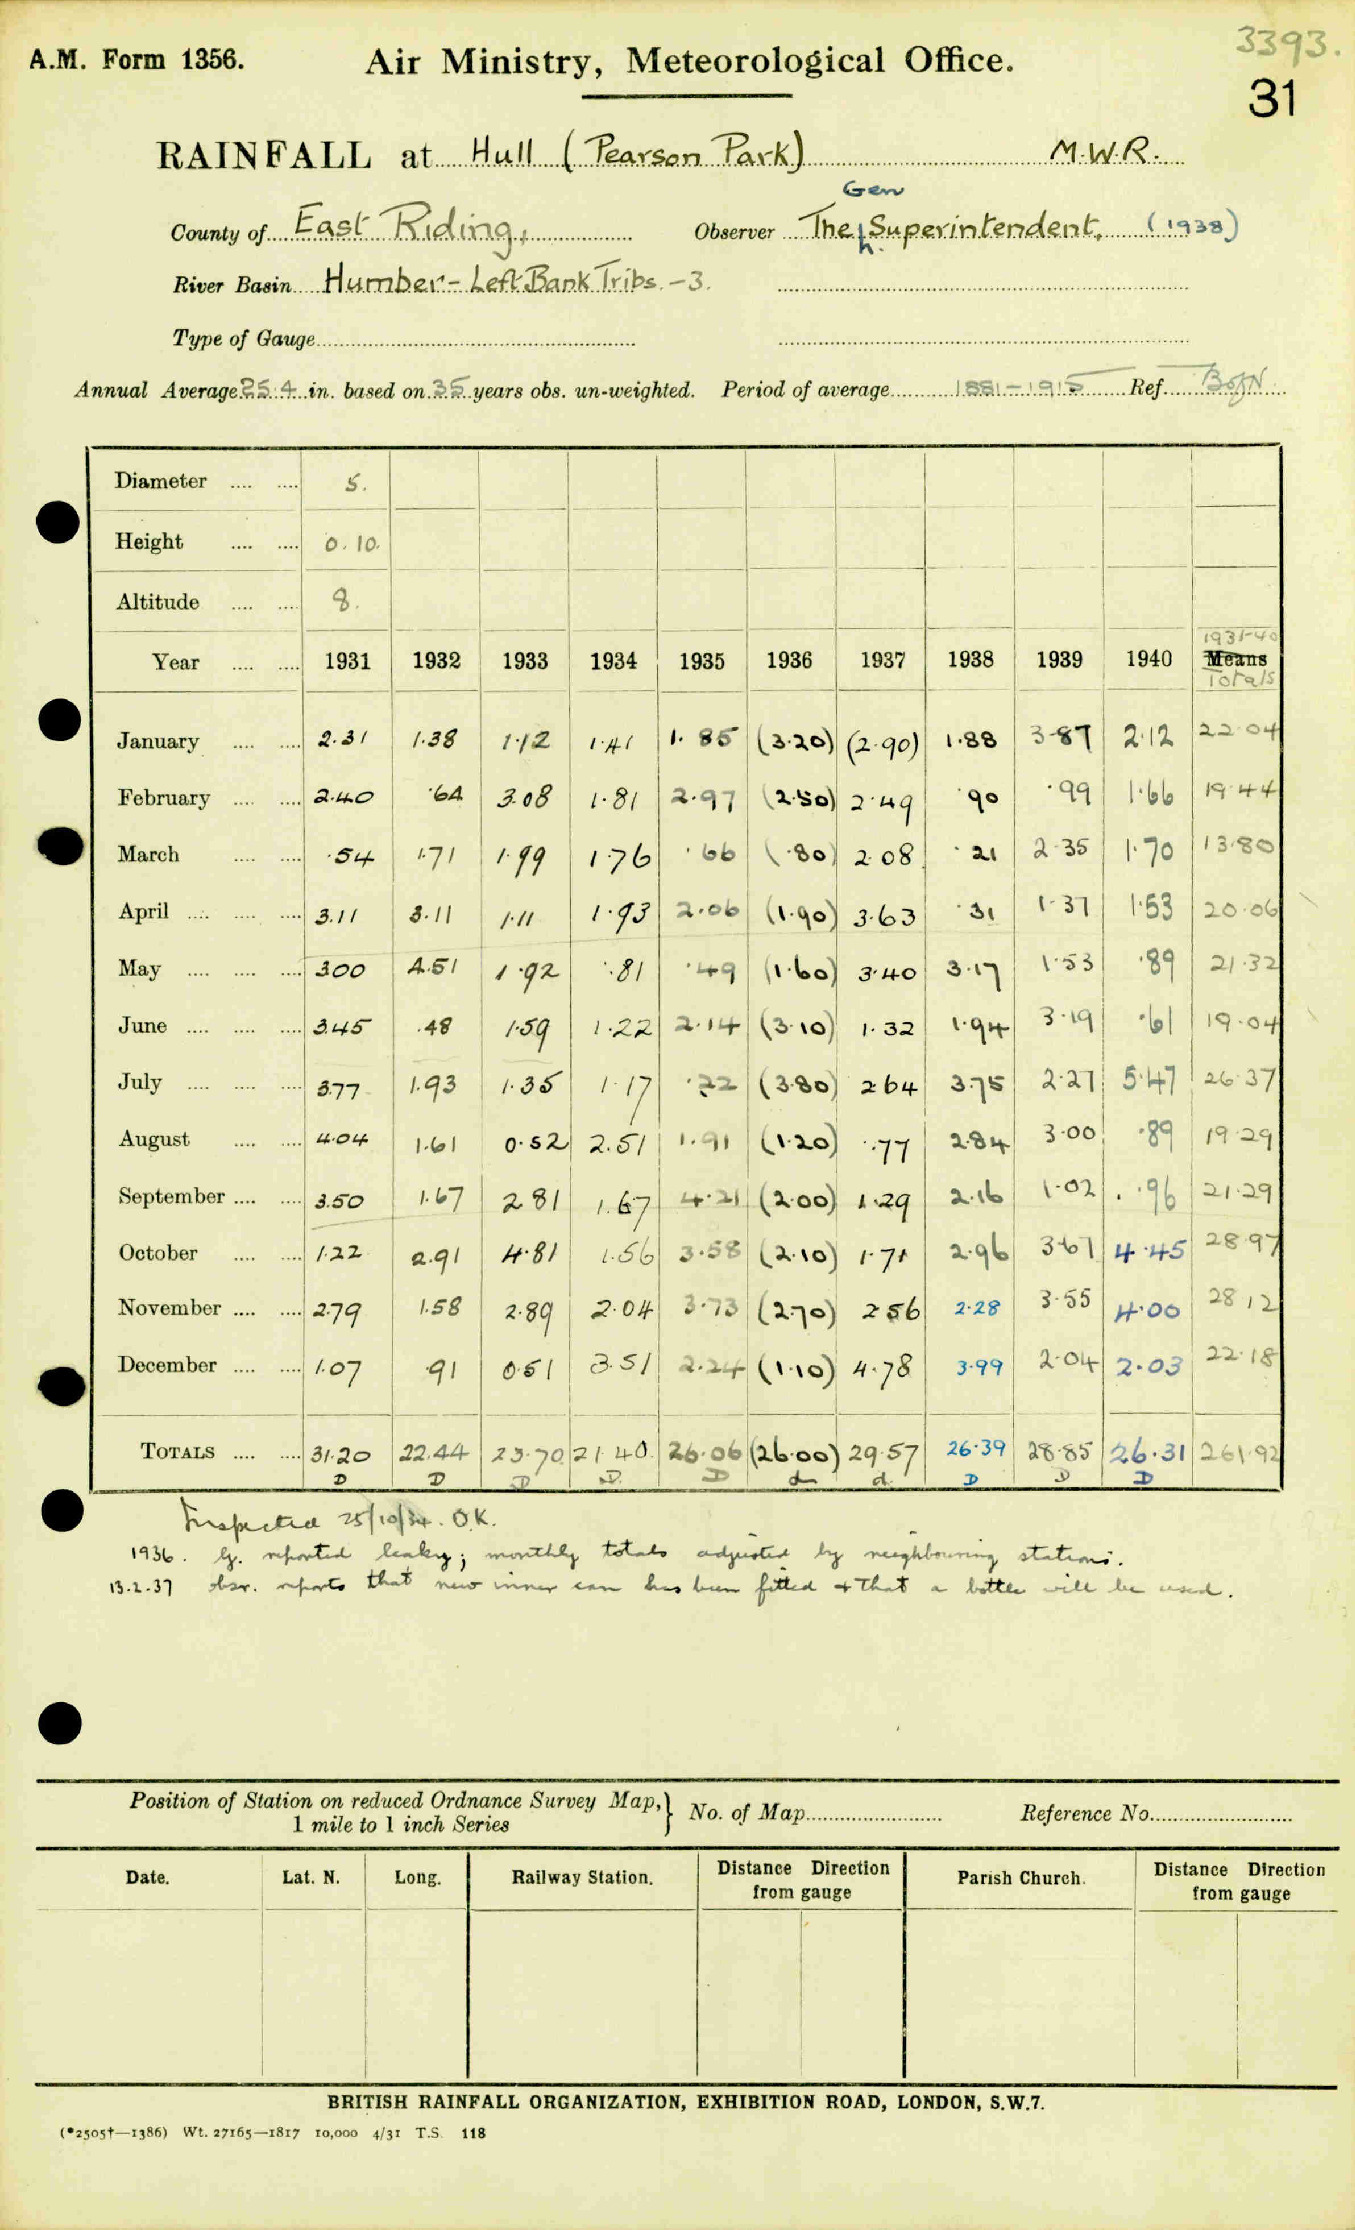 3393.
A.M. Form 1356. Air Ministry, Meteorological Office.
31
RAINFALL at Hull (Pearson Park) M.W.R.
Gen
County of East Riding, Observer The Superintendent, (1938)
River Basin Humber - Left Bank Tribs. - 3.
Type of Gauge
Annual Average 25.4 in. based on 35 years obs. un-weighted. Period of average 1881-1915 Ref.
Diameter 5.
Height 0.10.
Altitude 8.
1931-40
Year 1931 1932 1933 1934 1935 1936 1937 1938 1939 1940 Means
Totals
January 2.31 1.38 1.12 1.41 1.85 (3.20) (2.90) 1.88 3.87 2.12 22.04
February 2.40 .64 3.08 1.81 2.97 (2.50) 2.49 .90 .99 1.66 19.44
March .54 1.71 1.99 1.76 .66 (.80) 2.08 .21 2.35 1.70 13.80
April 3.11 3.11 1.11 1.93 2.06 (1.90) 3.63 .31 1.37 1.53 20.06
May 3.00 4.51 1.92 .81 .49 (1.60) 3.40 3.17 1.53 .89 21.32
June 3.45 .48 1.59 1.22 2.14 (3.10) 1.32 1.94 3.19 .61 19.04
July 3.77 1.93 1.35 1.17 .22 (3.80) 2.64 3.75 2.27 5.47 26.37
August 4.04 1.61 0.52 2.51 1.91 (1.20) .77 2.84 3.00 .89 19.29
September 3.50 1.67 2.81 1.67 4.21 (2.00) 1.29 2.16 1.02 .96 21.29
October 1.22 2.91 4.81 1.56 3.58 (2.10) 1.71 2.96 3.67 4.45 28.97
November 2.79 1.58 2.89 2.04 3.73 (2.70) 2.56 2.28 3.55 4.00 28.12
December 1.07 .91 0.51 3.51 2.24 (1.10) 4.78 3.99 2.04 2.03 22.18
TOTALS 31.20 22.44 23.70 21.40 26.06 (26.00) 29.57 26.39 28.85 26.31 261.92
D D D D D d d D D D
Inspected 25/10/34. O.K.
1936. G. reported leaky; monthly totals adjusted by neighbouring stations.
13.2.37 obsr. reports that new inner can has been fitted & that a bottle will be used.
Position of Station on reduced Ordnance Survey Map, 1 mile to 1 inch Series } No. of Map Reference No.
Date. Lat. N. Long. Railway Station. Distance Direction from gauge Parish Church. Distance Direction from gauge
BRITISH RAINFALL ORGANIZATION, EXHIBITION ROAD, LONDON, S.W.7.
(*2505†—1386) Wt. 27165—1817 10,000 4/31 T.S. 118